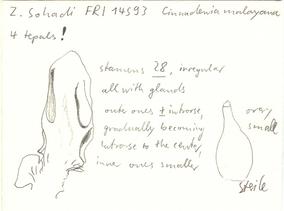 Z. Sohadi FRI 14593 Cinnadenia malayana
4 tepals!
stamens 28, irregular
all with glands
outer ones ± introrse,
gradually becoming
latrorse to the center,
inner ones smaller
ovary
small
steile